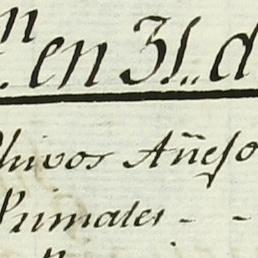 en 31.. d
Chivos Añejo
Primales - -